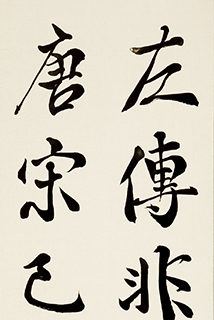 左傳非
唐宋已